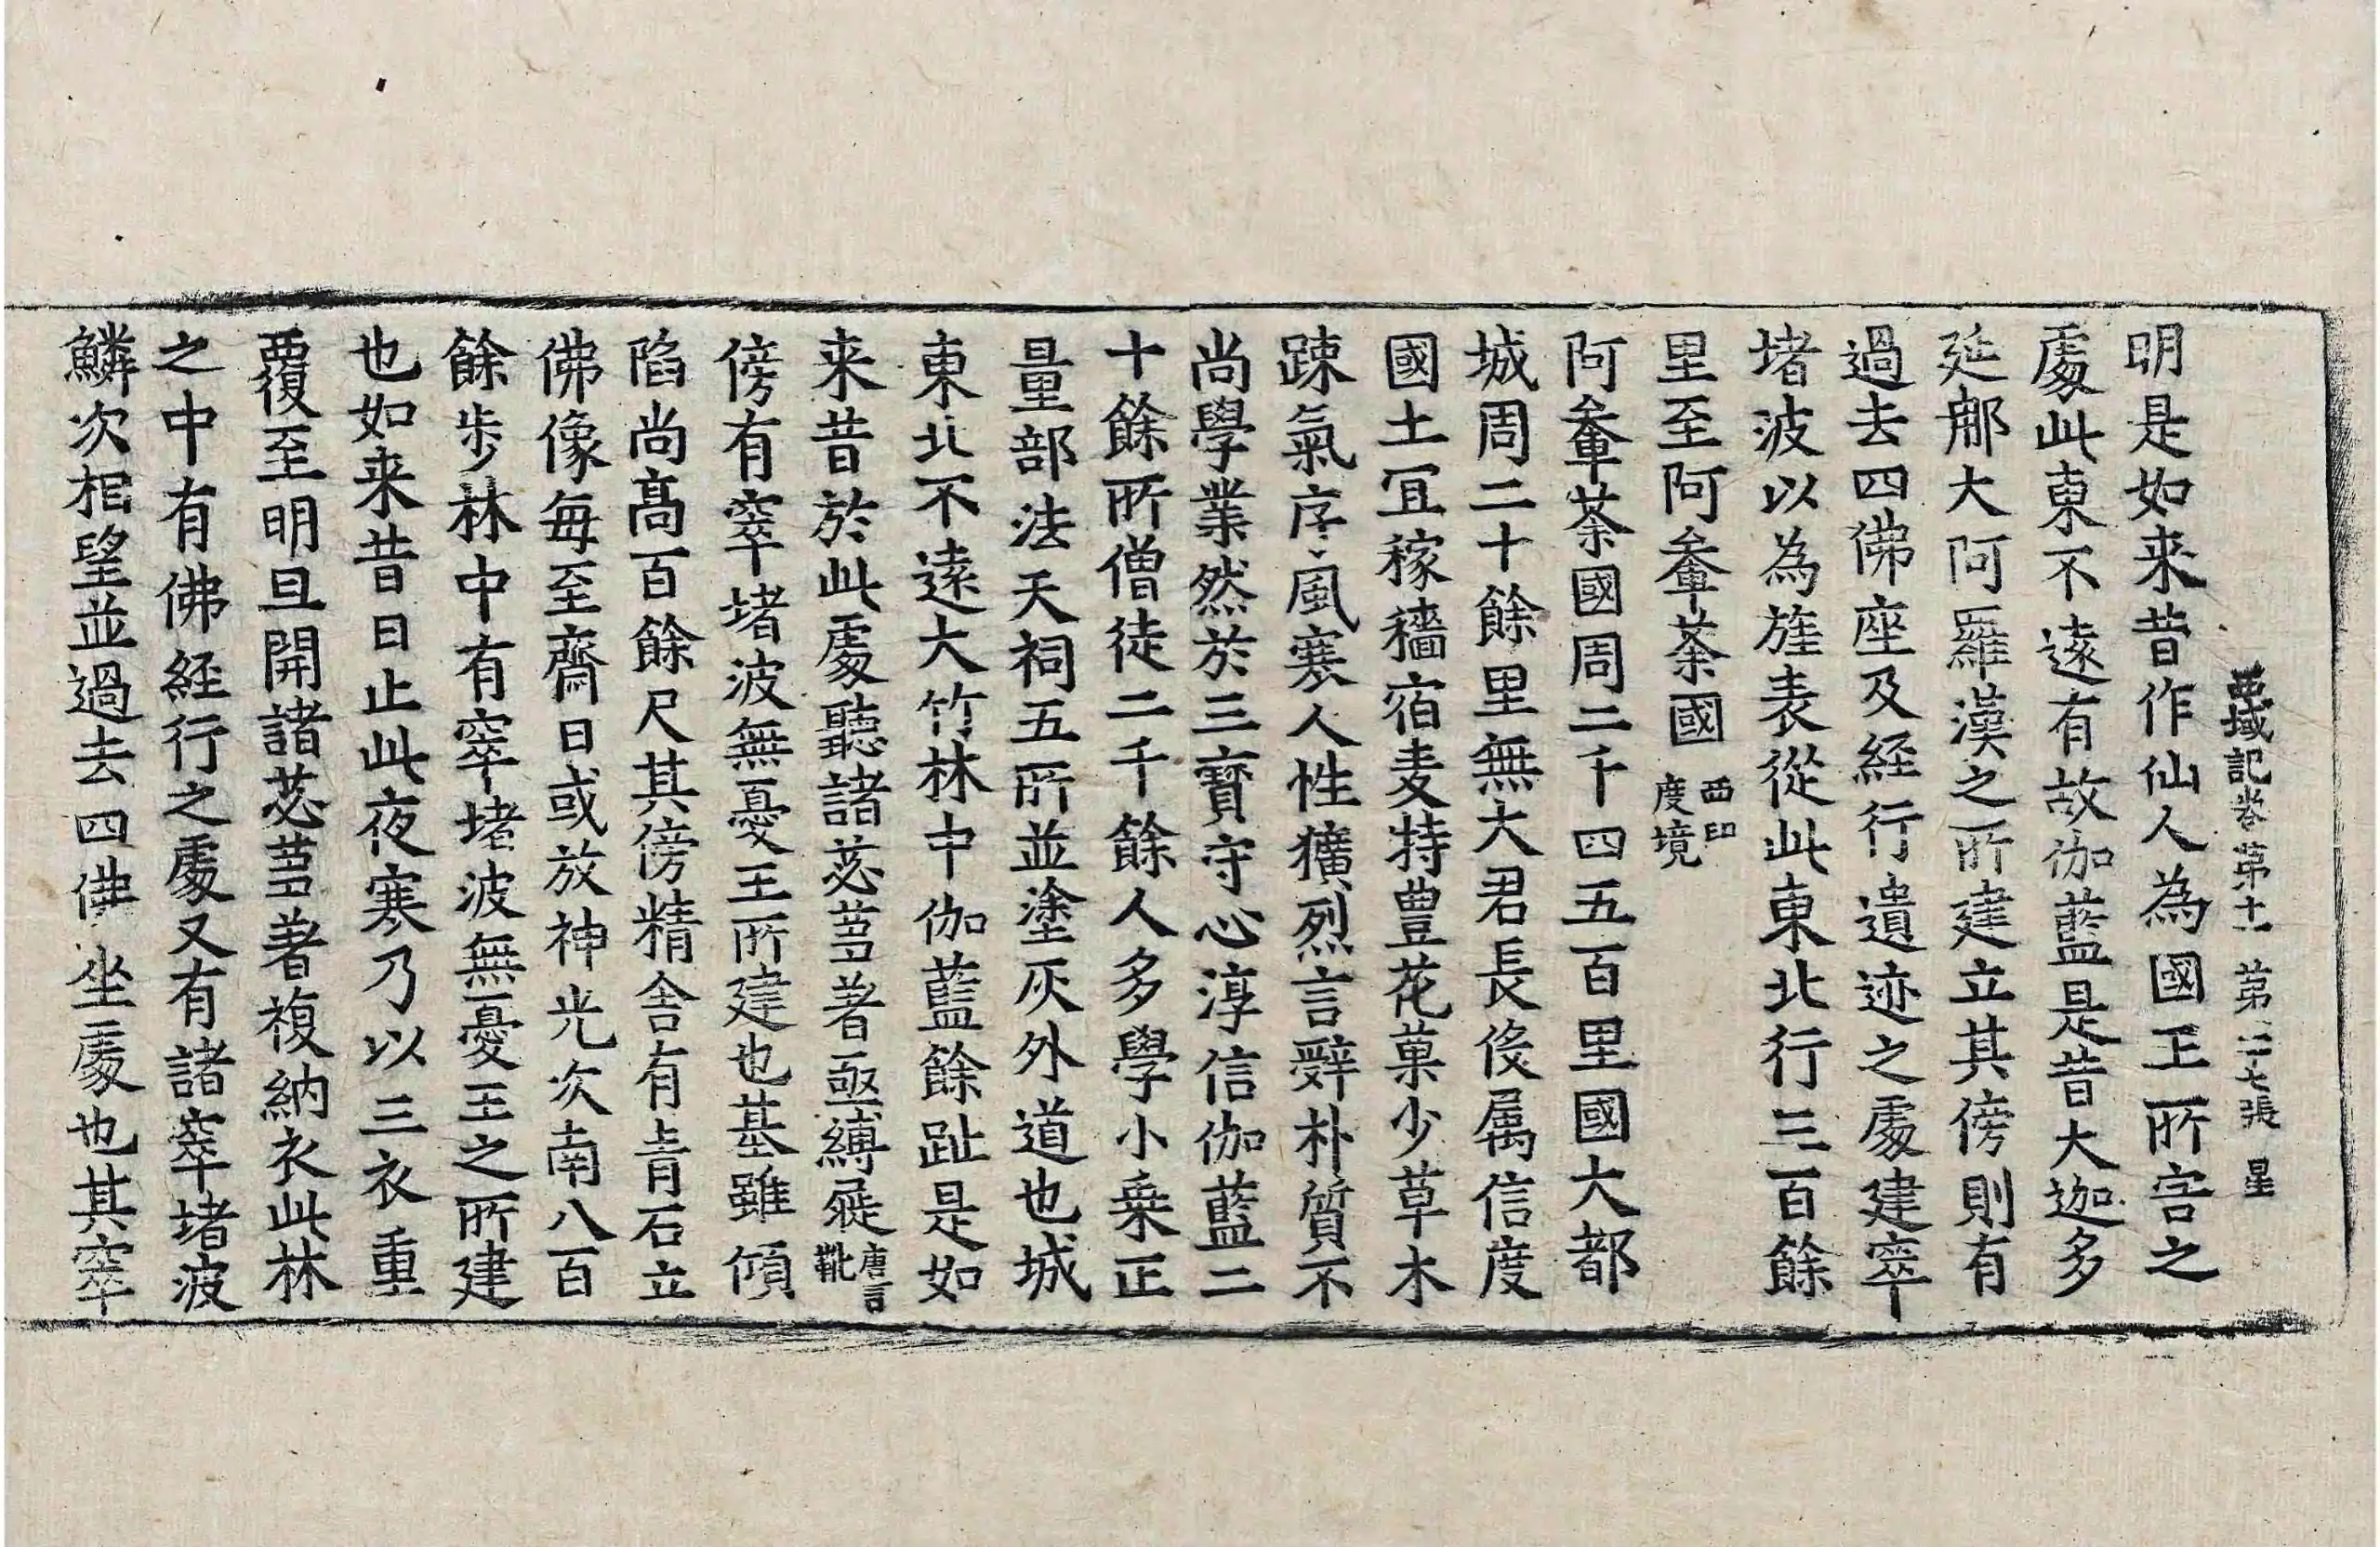 西域記卷苐十一 苐二十七張 星
明是如来昔作仙人為國王所害之
處此東不遠有故伽藍是昔大迦多
延那大阿羅漢之所建立其傍則有
過去四佛座及経行遺迹之處建窣
堵波以為旌表從此東北行三百餘
里至阿軬荼國西印度境
阿軬荼國周二千四五百里國大都
城周二十餘里無大君長役属信度
國土宜稼穡宿麦特豊花菓少草木
踈氣序風寒人性獷烈言辤朴質不
尚學業然於三寳守心淳信伽藍二
十餘所僧徒二千餘人多學小乗正
量部法天祠五所並塗灰外道也城
東北不遠大竹林中伽藍餘趾是如
来昔於此處聽諸苾蒭著亟縛屣唐言靴
傍有窣堵波無憂王所建也基雖傾
陷尚髙百餘尺其傍精舎有青石立
佛像毎至齋日或放神光次南八百
餘步林中有窣堵波無憂王之所建
也如来昔日止此夜寒乃以三衣重
覆至明旦開諸苾蒭著複納衣此林
之中有佛経行之處又有諸窣堵波
鱗次相望並過去四佛坐處也其窣